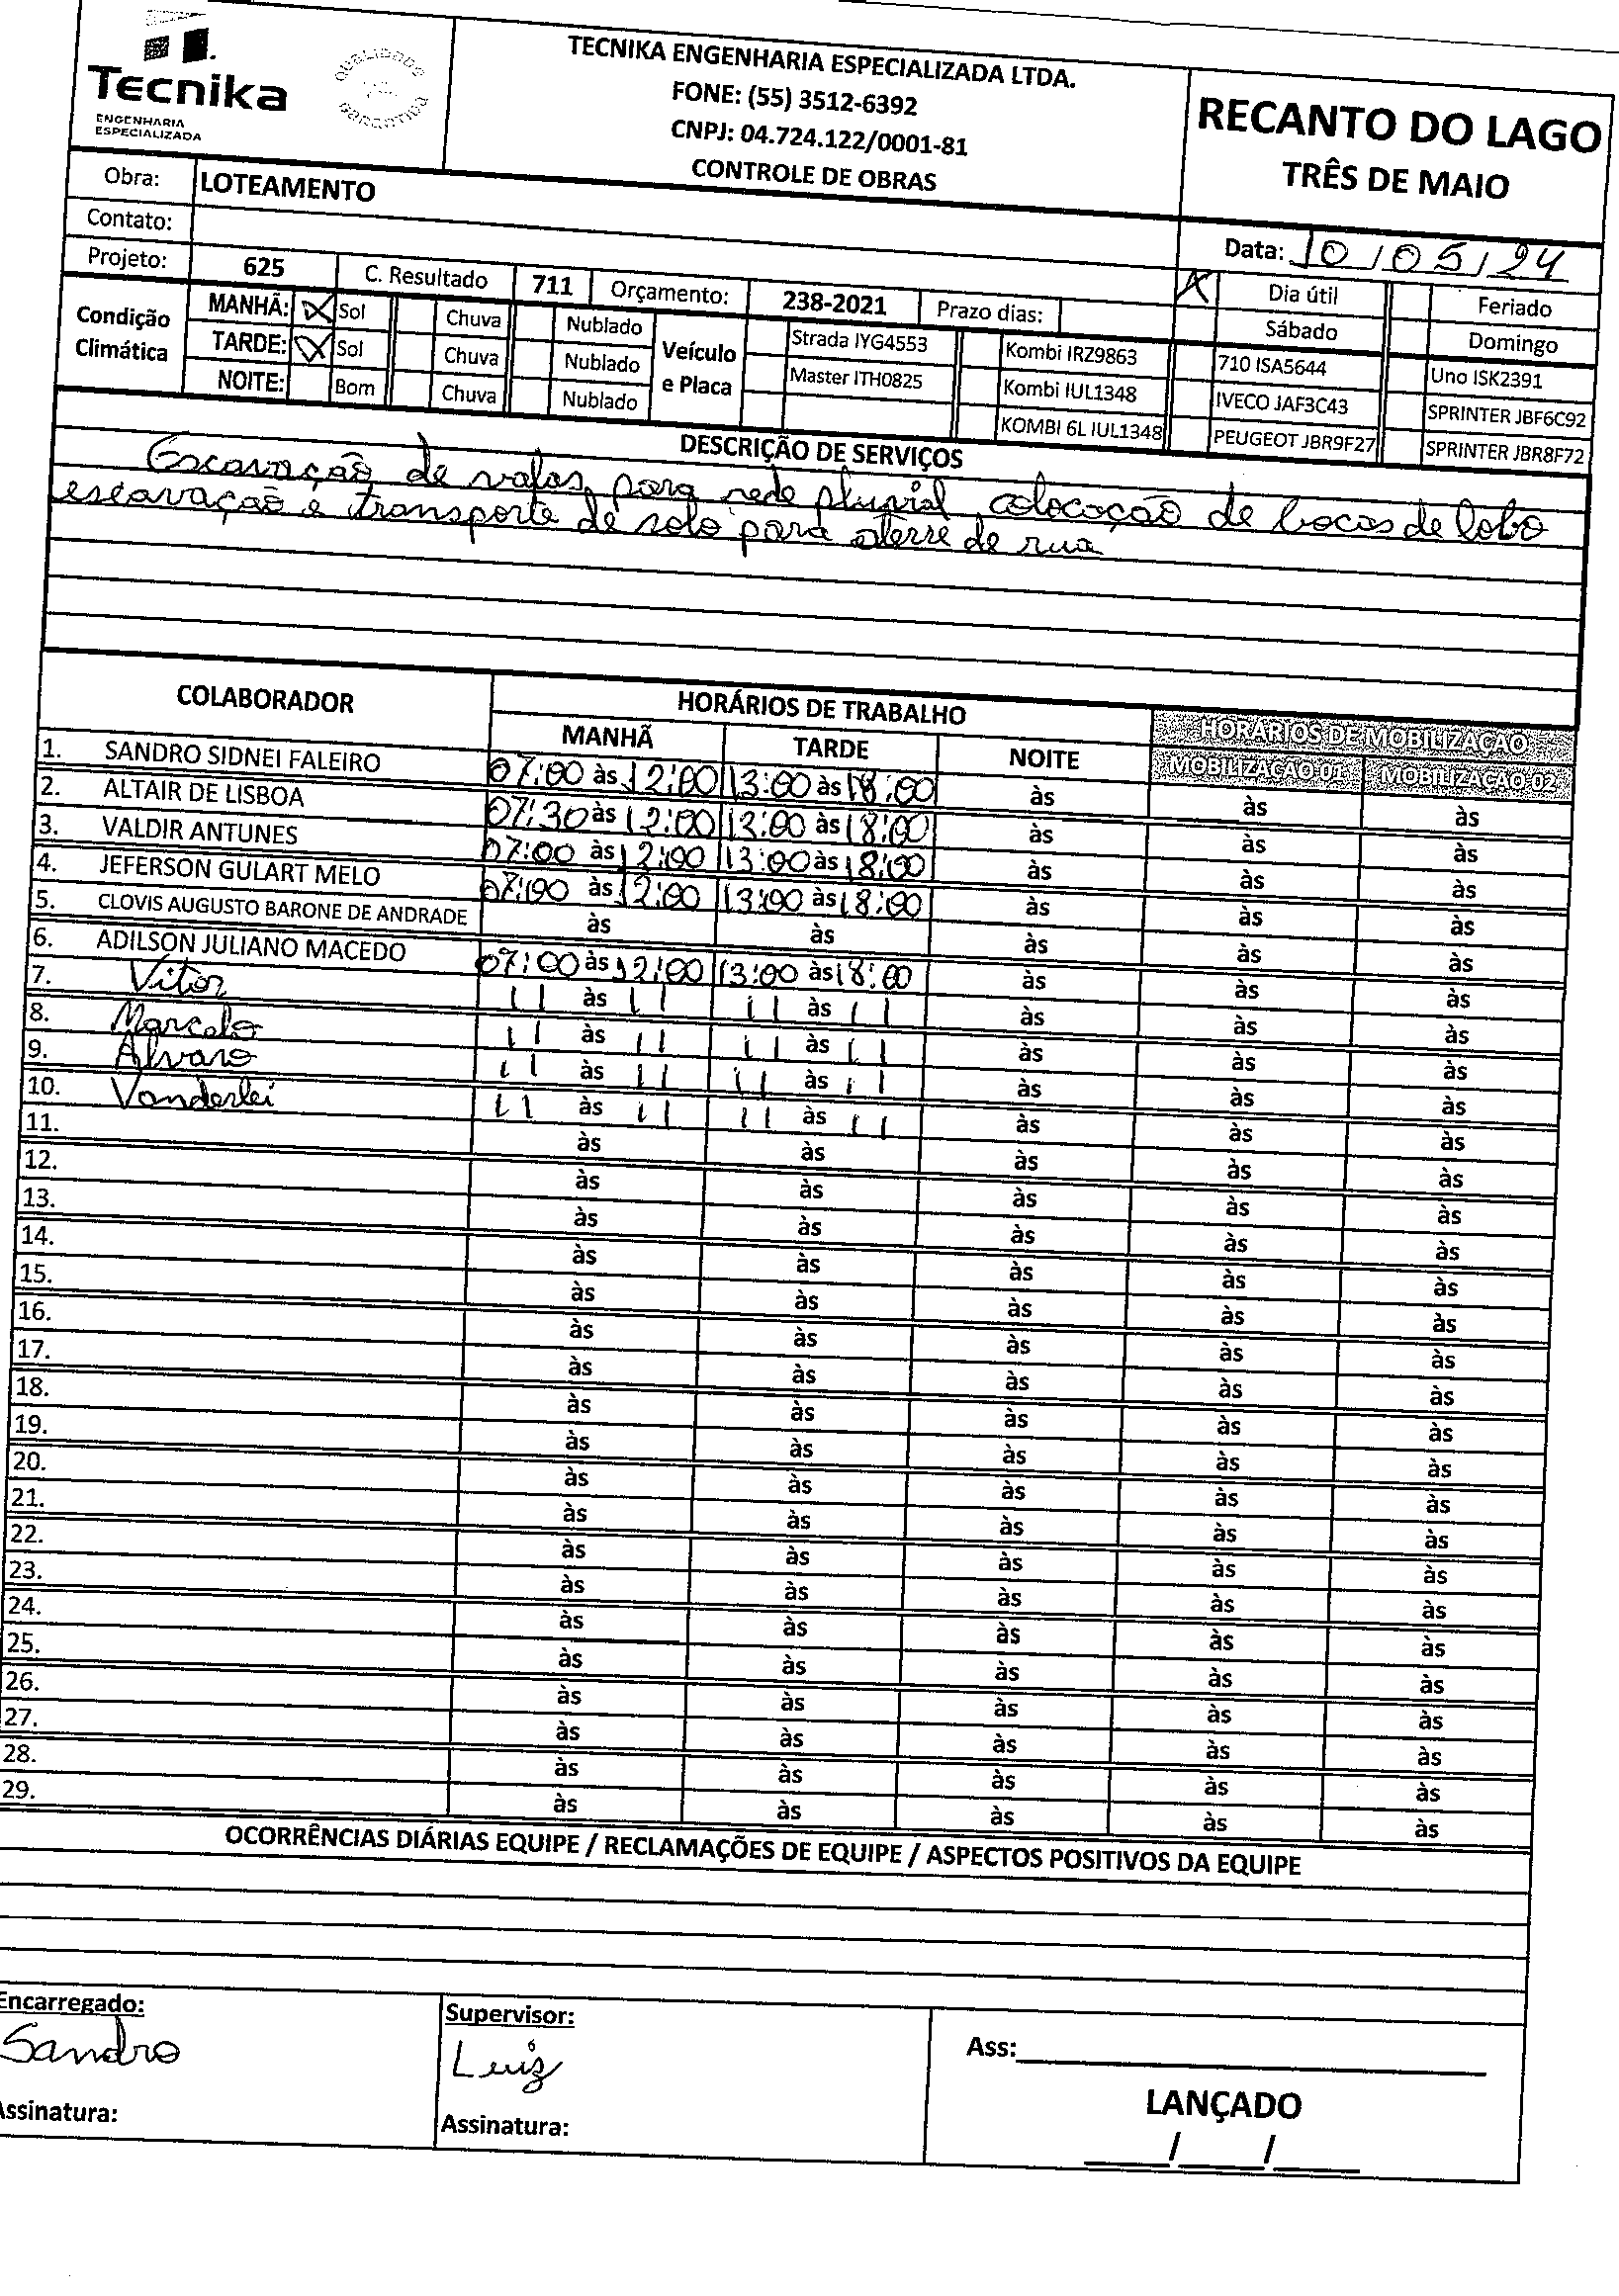 Tecnika
ENGENHARIA
ESPECIALIZADA
QUALIDADE
GARANTIDA
TECNIKA ENGENHARIA ESPECIALIZADA LTDA.
FONE: (55) 3512-6392
CNPJ: 04.724.122/0001-81
CONTROLE DE OBRAS
RECANTO DO LAGO
TRÊS DE MAIO
Obra: LOTEAMENTO
Contato:
Data: 10/05/24
Projeto: 625 C. Resultado 711 Orçamento: 238-2021 Prazo dias:
X Dia útil Feriado
Sábado Domingo
Condição Climática
MANHÃ: X Sol Chuva Nublado
TARDE: X Sol Chuva Nublado
NOITE: Bom Chuva Nublado
Veículo e Placa
Strada IYG4553 Kombi IRZ9863 710 ISA5644 Uno ISK2391
Master ITH0825 Kombi IUL1348 IVECO JAF3C43 SPRINTER JBF6C92
KOMBI 6L IUL1348 PEUGEOT JBR9F27 SPRINTER JBR8F72
DESCRIÇÃO DE SERVIÇOS
Escavação de valas para rede pluvial, colocação de bocas de lobo
escavação e transporte de solo para aterre de rua
COLABORADOR HORÁRIOS DE TRABALHO HORÁRIOS DE MOBILIZAÇÃO
MANHÃ TARDE NOITE MOBILIZAÇÃO 01 MOBILIZAÇÃO 02
1. SANDRO SIDNEI FALEIRO 07:00 às 12:00 13:00 às 18:00 às às às
2. ALTAIR DE LISBOA 07:30 às 12:00 13:00 às 18:00 às às às
3. VALDIR ANTUNES 07:00 às 12:00 13:00 às 18:00 às às às
4. JEFERSON GULART MELO 07:00 às 12:00 13:00 às 18:00 às às às
5. CLOVIS AUGUSTO BARONE DE ANDRADE às às às às às
6. ADILSON JULIANO MACEDO 07:00 às 12:00 13:00 às 18:00 às às às
7. Vitor 11 às 11 11 às 11 às às às
8. Marcelo 11 às 11 11 às 11 às às às
9. Alvaro 11 às 11 11 às 11 às às às
10. Vanderlei 11 às 11 11 às 11 às às às
11. às às às às às
12. às às às às às
13. às às às às às
14. às às às às às
15. às às às às às
16. às às às às às
17. às às às às às
18. às às às às às
19. às às às às às
20. às às às às às
21. às às às às às
22. às às às às às
23. às às às às às
24. às às às às às
25. às às às às às
26. às às às às às
27. às às às às às
28. às às às às às
29. às às às às às
OCORRÊNCIAS DIÁRIAS EQUIPE / RECLAMAÇÕES DE EQUIPE / ASPECTOS POSITIVOS DA EQUIPE
Encarregado: Supervisor:
Sandro Luiz Ass:
Assinatura: Assinatura: LANÇADO
/ /